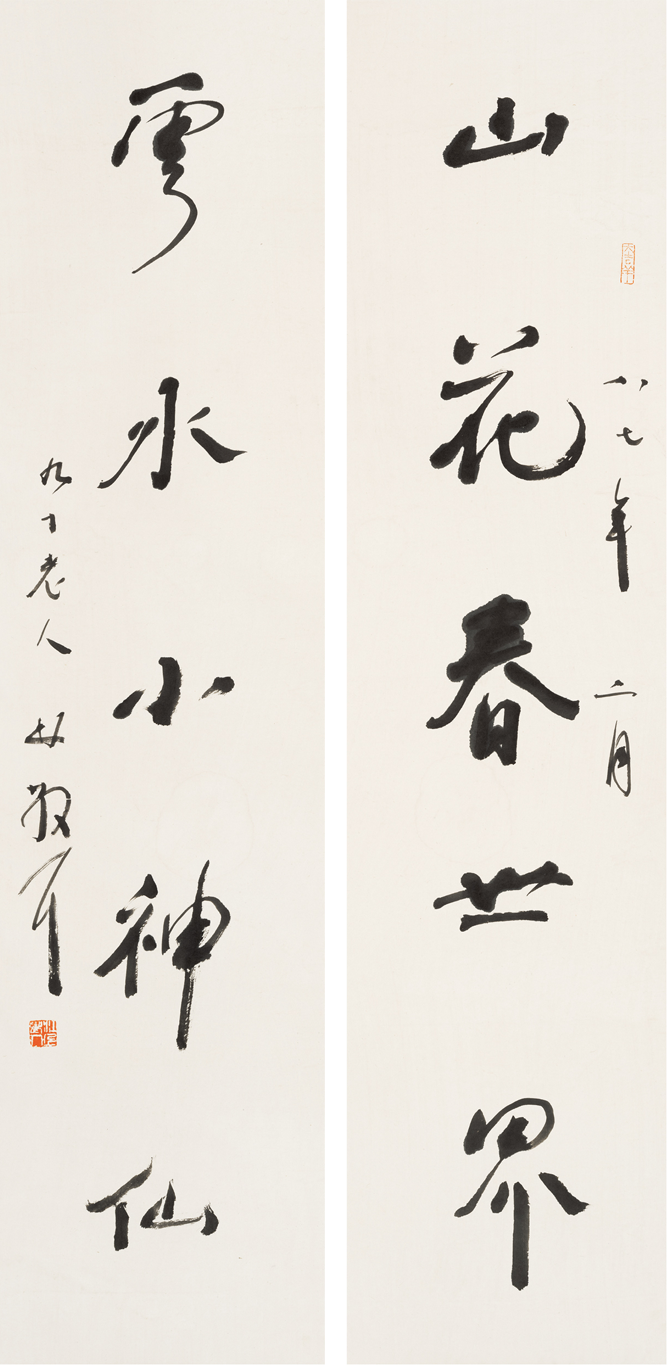 八七年二月
山花春世界
雲水小神仙
九十老人林散耳